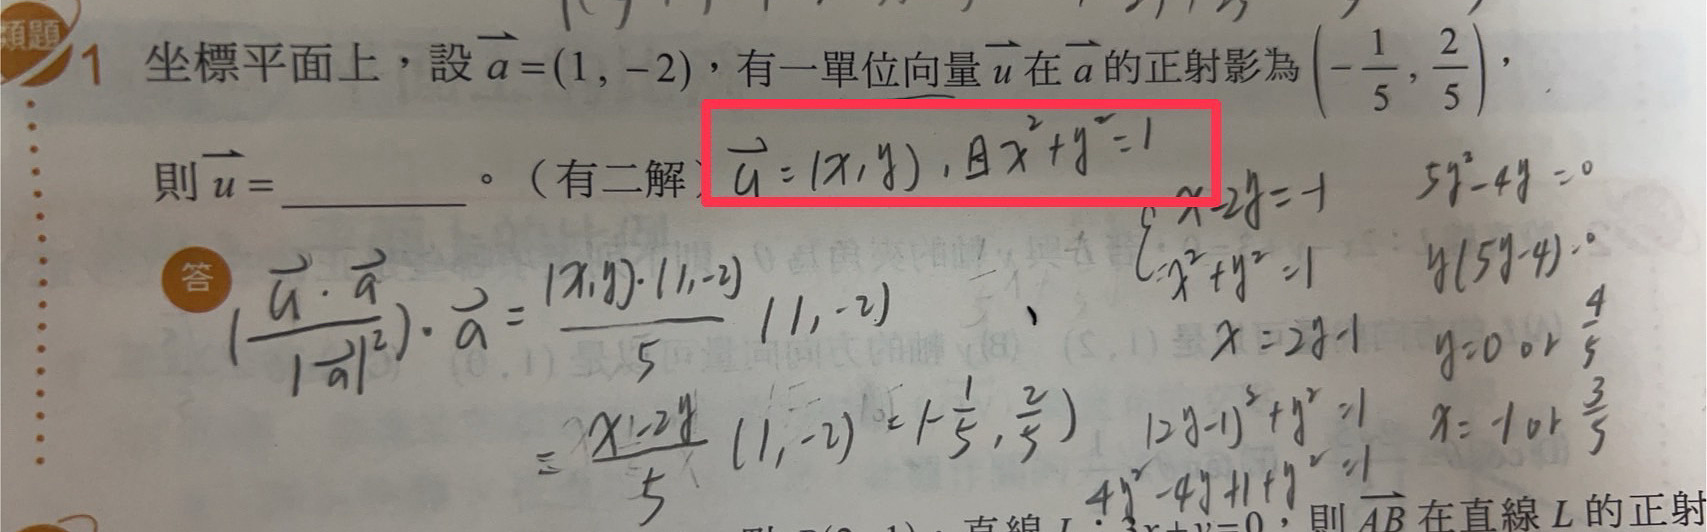 類題 1 坐標平面上，設 a⃗ =(1, −2)，有一單位向量 u⃗ 在 a⃗ 的正射影為 (−1/5, 2/5)，
則 u⃗ = ______。（有二解）
u⃗ = (x, y), 且 x²+y²=1
答
(u⃗·a⃗/|a⃗|²)·a⃗ = (x,y)·(1,-2)/5 (1,-2)
= x-2y/5 (1,-2) = (-1/5, 2/5)
{ x-2y=-1
x²+y²=1
x=2y-1
(2y-1)²+y²=1
4y²-4y+1+y²=1
5y²-4y=0
y(5y-4)=0
y=0 or 4/5
x=-1 or 3/5
，直線 L：3x+y=0，則 AB⃗ 在直線 L 的正射